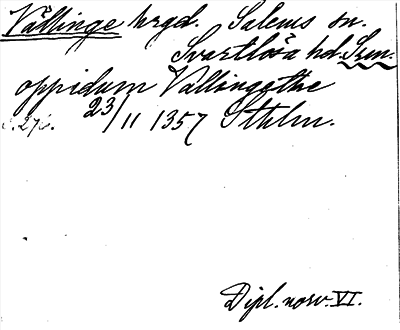 Vällinge hrgd. Salems sn.
Svartlösa hd. Srm.
oppidum Vallingøthe
s. 276. 23/11 1357 Sthlm.
Dipl. norv. VI.